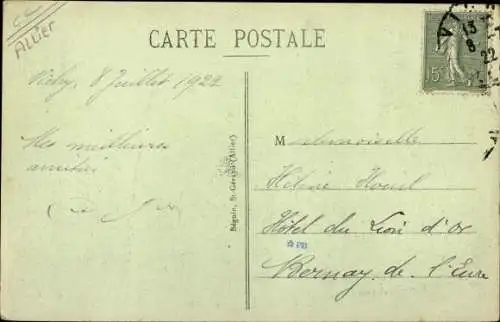 Allier
CARTE POSTALE
13
8
22
15
Vichy, 8 Juillet 1922
Mes meilleures
amitiés
Béguin, St-Germain (Allier)
Mademoiselle
Hélène
Hôtel du Lion d'Or
PB
Bernay de l'Eure